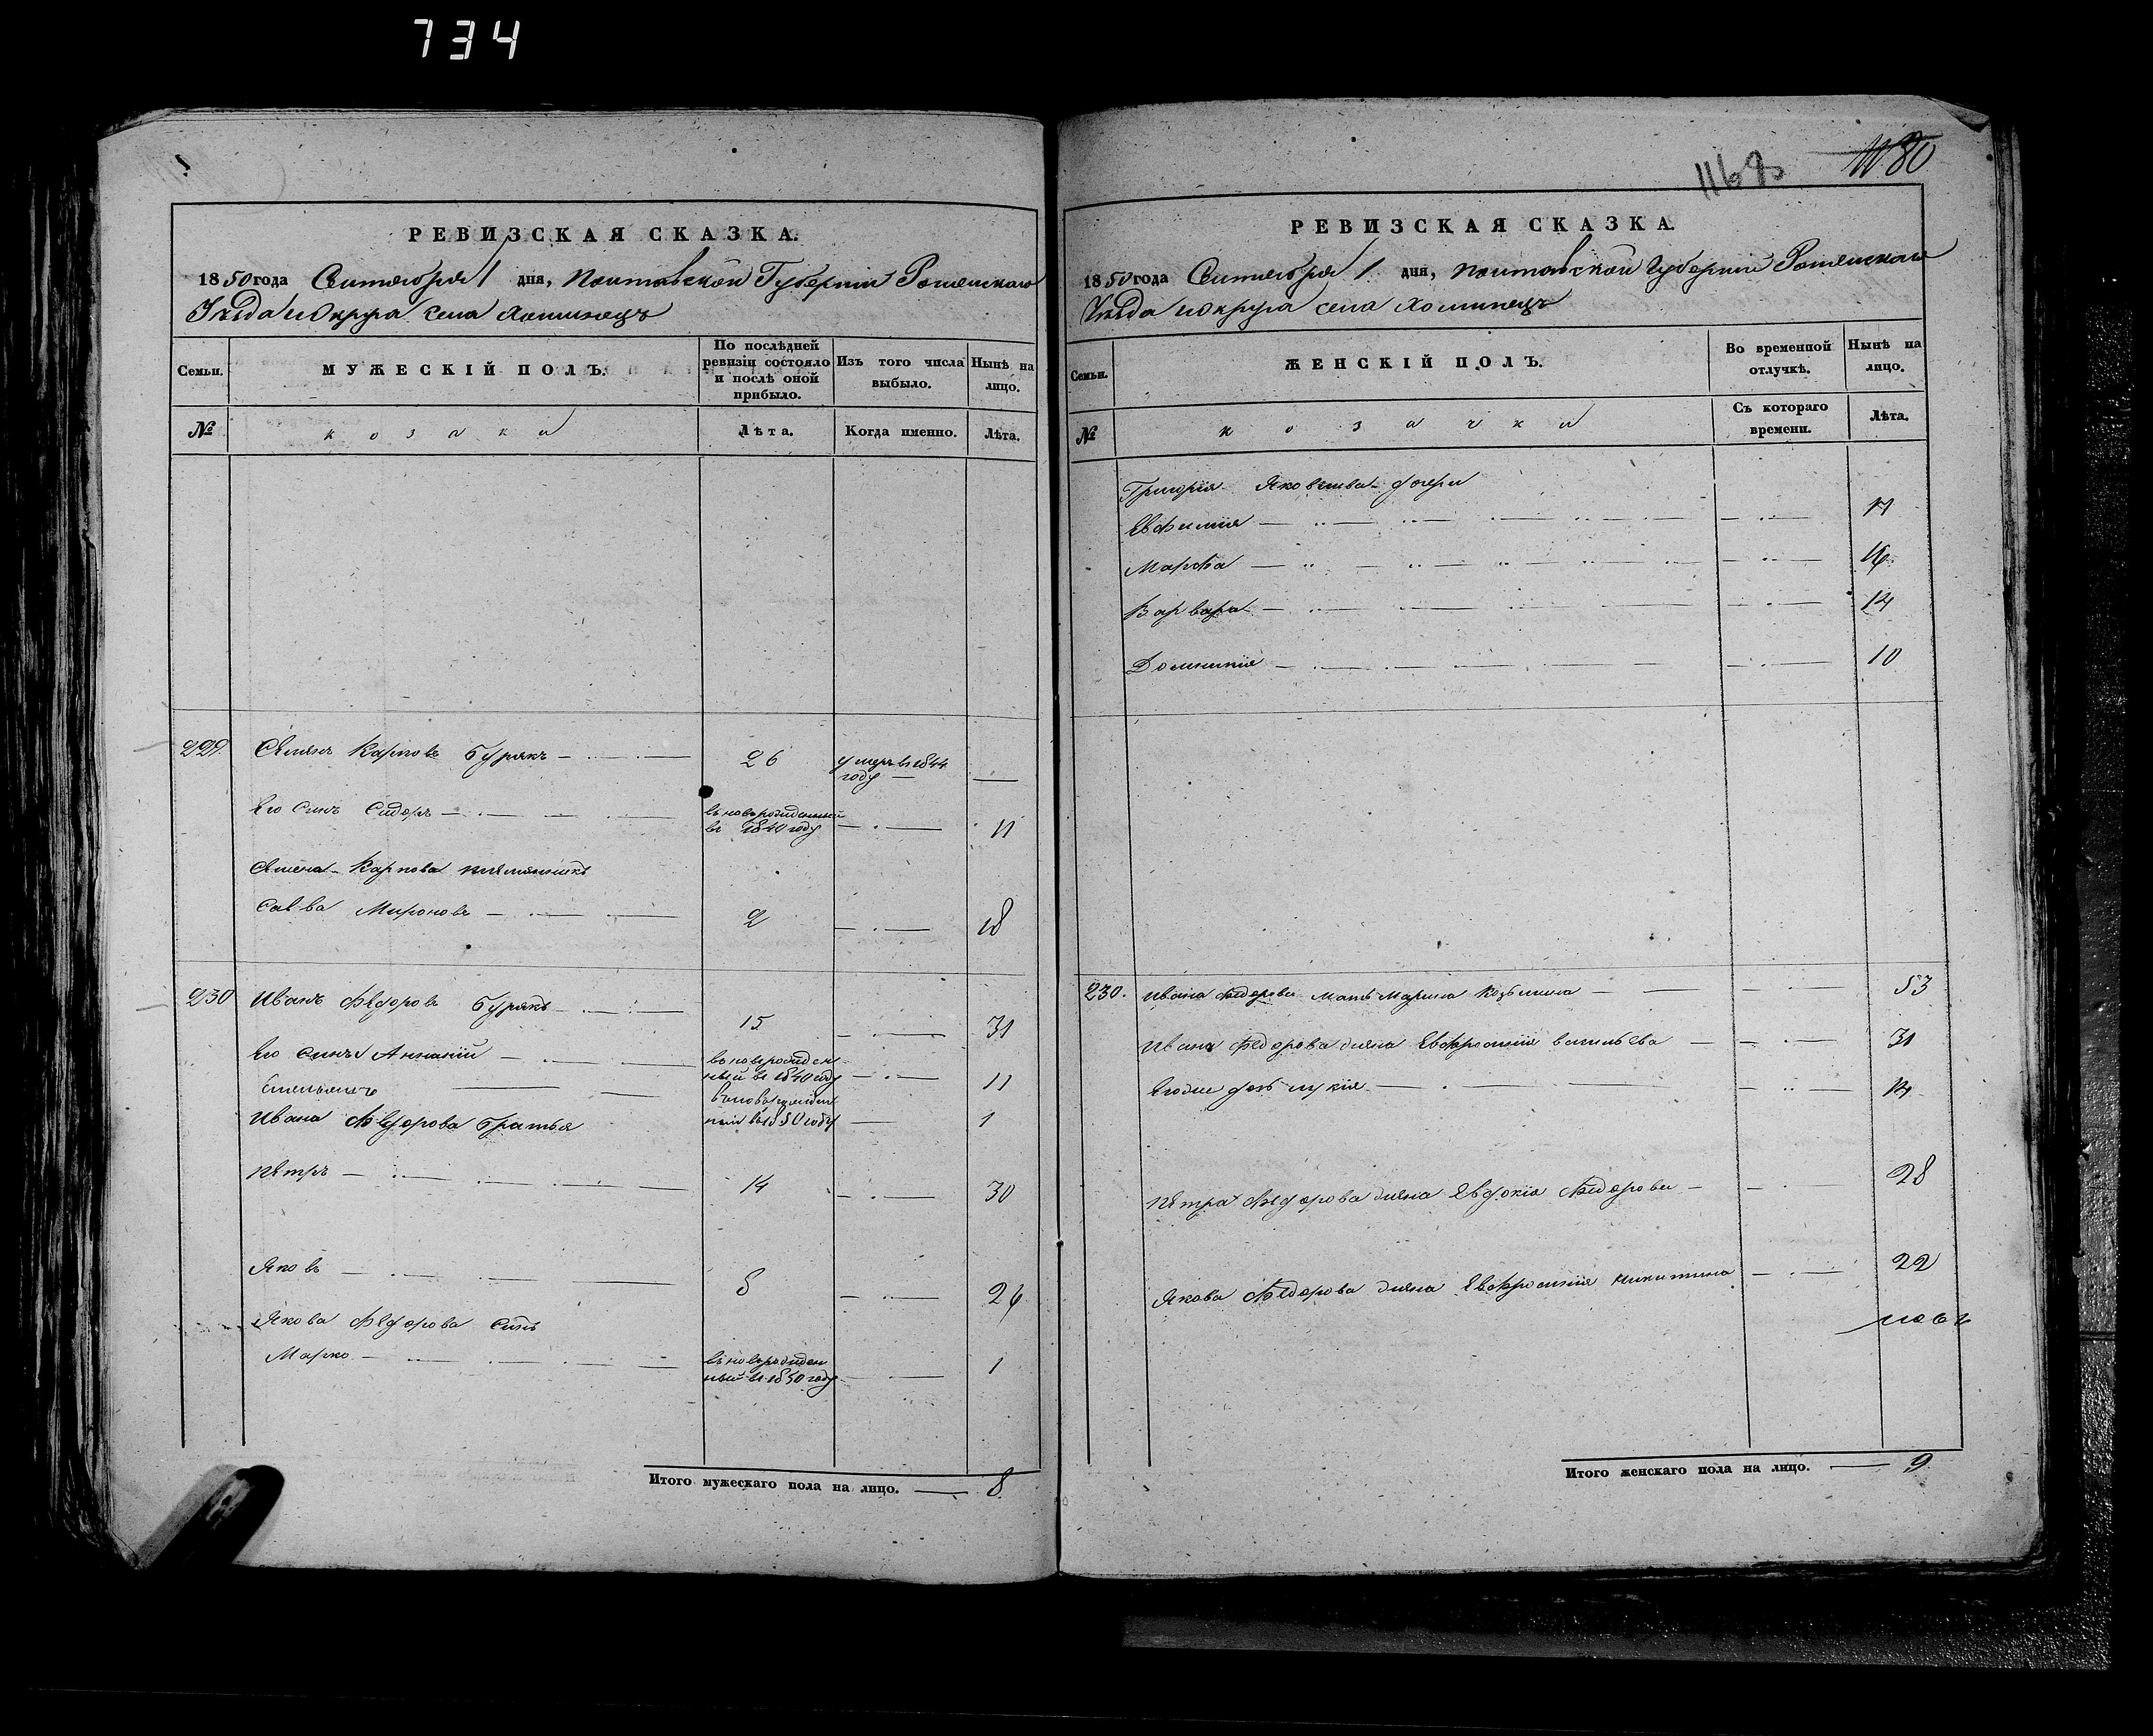 734
1168
1180
РЕВИЗСКАЯ СКАЗКА.
1850 года Сентября 1 дня, Полтавской Губернии Роменскаго
Уезда и Округа села Хоминецъ
Семьи. МУЖЕСКІЙ ПОЛЪ. По послѣдней ревизіи состояло и послѣ оной прибыло. Изъ того числа выбыло. Нынѣ на лицо.
№ козаки Лѣта. Когда именно. Лѣта.
229. Семенъ Карповъ Бурякъ 26 умеръ в 1844 году
Его Сынъ Сидоръ въновьрожденный въ 1840 году 11
Семена Карпова племянникъ
Савва Мироновъ 2 18
230 Иванъ Федоровъ Бурякъ 15 31
Его Сынъ Ананій въновьрожденный въ 1840 году 11
Емельянъ въновьрожденный въ 1850 году 1
Ивана Федорова Братья
Петръ 14 30
Яковъ 8 24
Якова Федорова Сынъ
Марко въновьрожденный въ 1850 году 1
Итого мужескаго пола на лицо. 8
РЕВИЗСКАЯ СКАЗКА.
1850 года Сентября 1 дня, Полтавской Губерніи Роменскаго
Уезда и Округа села Хоминецъ
Семьи. ЖЕНСКІЙ ПОЛЪ. Во временной отлучкѣ. Нынѣ на лицо.
№ козачки Съ котораго времени. Лѣта.
Григорія Яковлева дочери
Евфимія
Марфа 16
Варвара 14
Домникія 10
230. Ивана Федорова Мать Марина Козьмина 53
Ивана Федорова жена Евфросинія васильева 31
Петра Федорова жена Евдокія Федорова 28
Якова Федорова жена Евфросинія никитина 22
Итого женскаго пола на лицо. 9